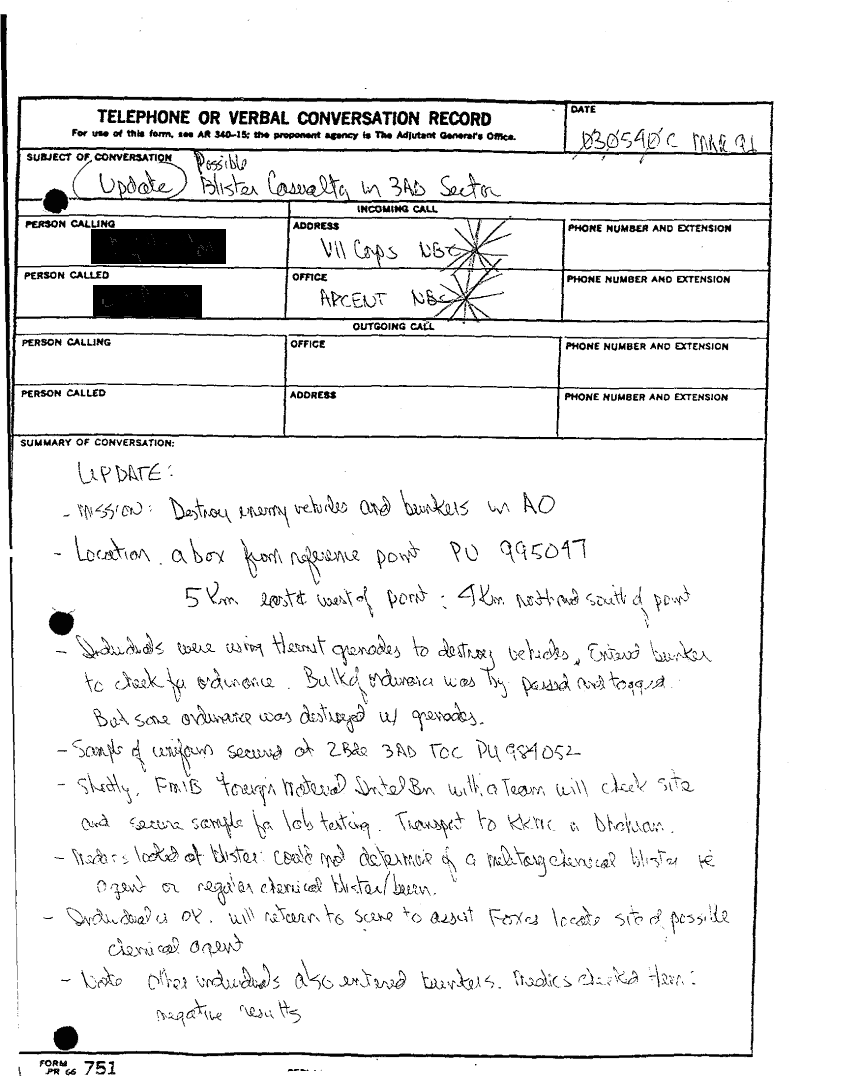 TELEPHONE OR VERBAL CONVERSATION RECORD
For use of this form, see AR 340-15; the proponent agency is The Adjutant General's Office.
DATE
030540C MAR 91
SUBJECT OF CONVERSATION
Update Possible Blister Casualty in 3AD Sector
INCOMING CALL
PERSON CALLING
ADDRESS
VII Corps NBC
PHONE NUMBER AND EXTENSION
PERSON CALLED
OFFICE
ARCENT NBC
PHONE NUMBER AND EXTENSION
OUTGOING CALL
PERSON CALLING
OFFICE
PHONE NUMBER AND EXTENSION
PERSON CALLED
ADDRESS
PHONE NUMBER AND EXTENSION
SUMMARY OF CONVERSATION:
UPDATE:
- MISSION: Destroy enemy vehicles and bunkers in AO
- Location. a box from reference point PU 995047
5 Km east & west of point: 4 Km north and south of point
- Individuals were using thermit grenades to destroy vehicles. Entered bunker
to check for ordinance. Bulk of ordinance was by passed and tagged.
But some ordinance was destroyed w/ grenades.
- Sample of uniform secured at 2Bde 3AD TOC PU 984052
- Shortly, FMIB Foreign Material Intel Bn with a Team will check site
and secure sample for lab testing. Transport to KKMC or Dhahran.
- Medics looked at blister: could not determine if a military chemical blister
agent or regular chemical blister/burn.
- Individual is OK. will return to scene to assist Foxes locate site of possible
chemical agent
- Note other individuals also entered bunkers. Medics checked them:
negative results
FORM
751